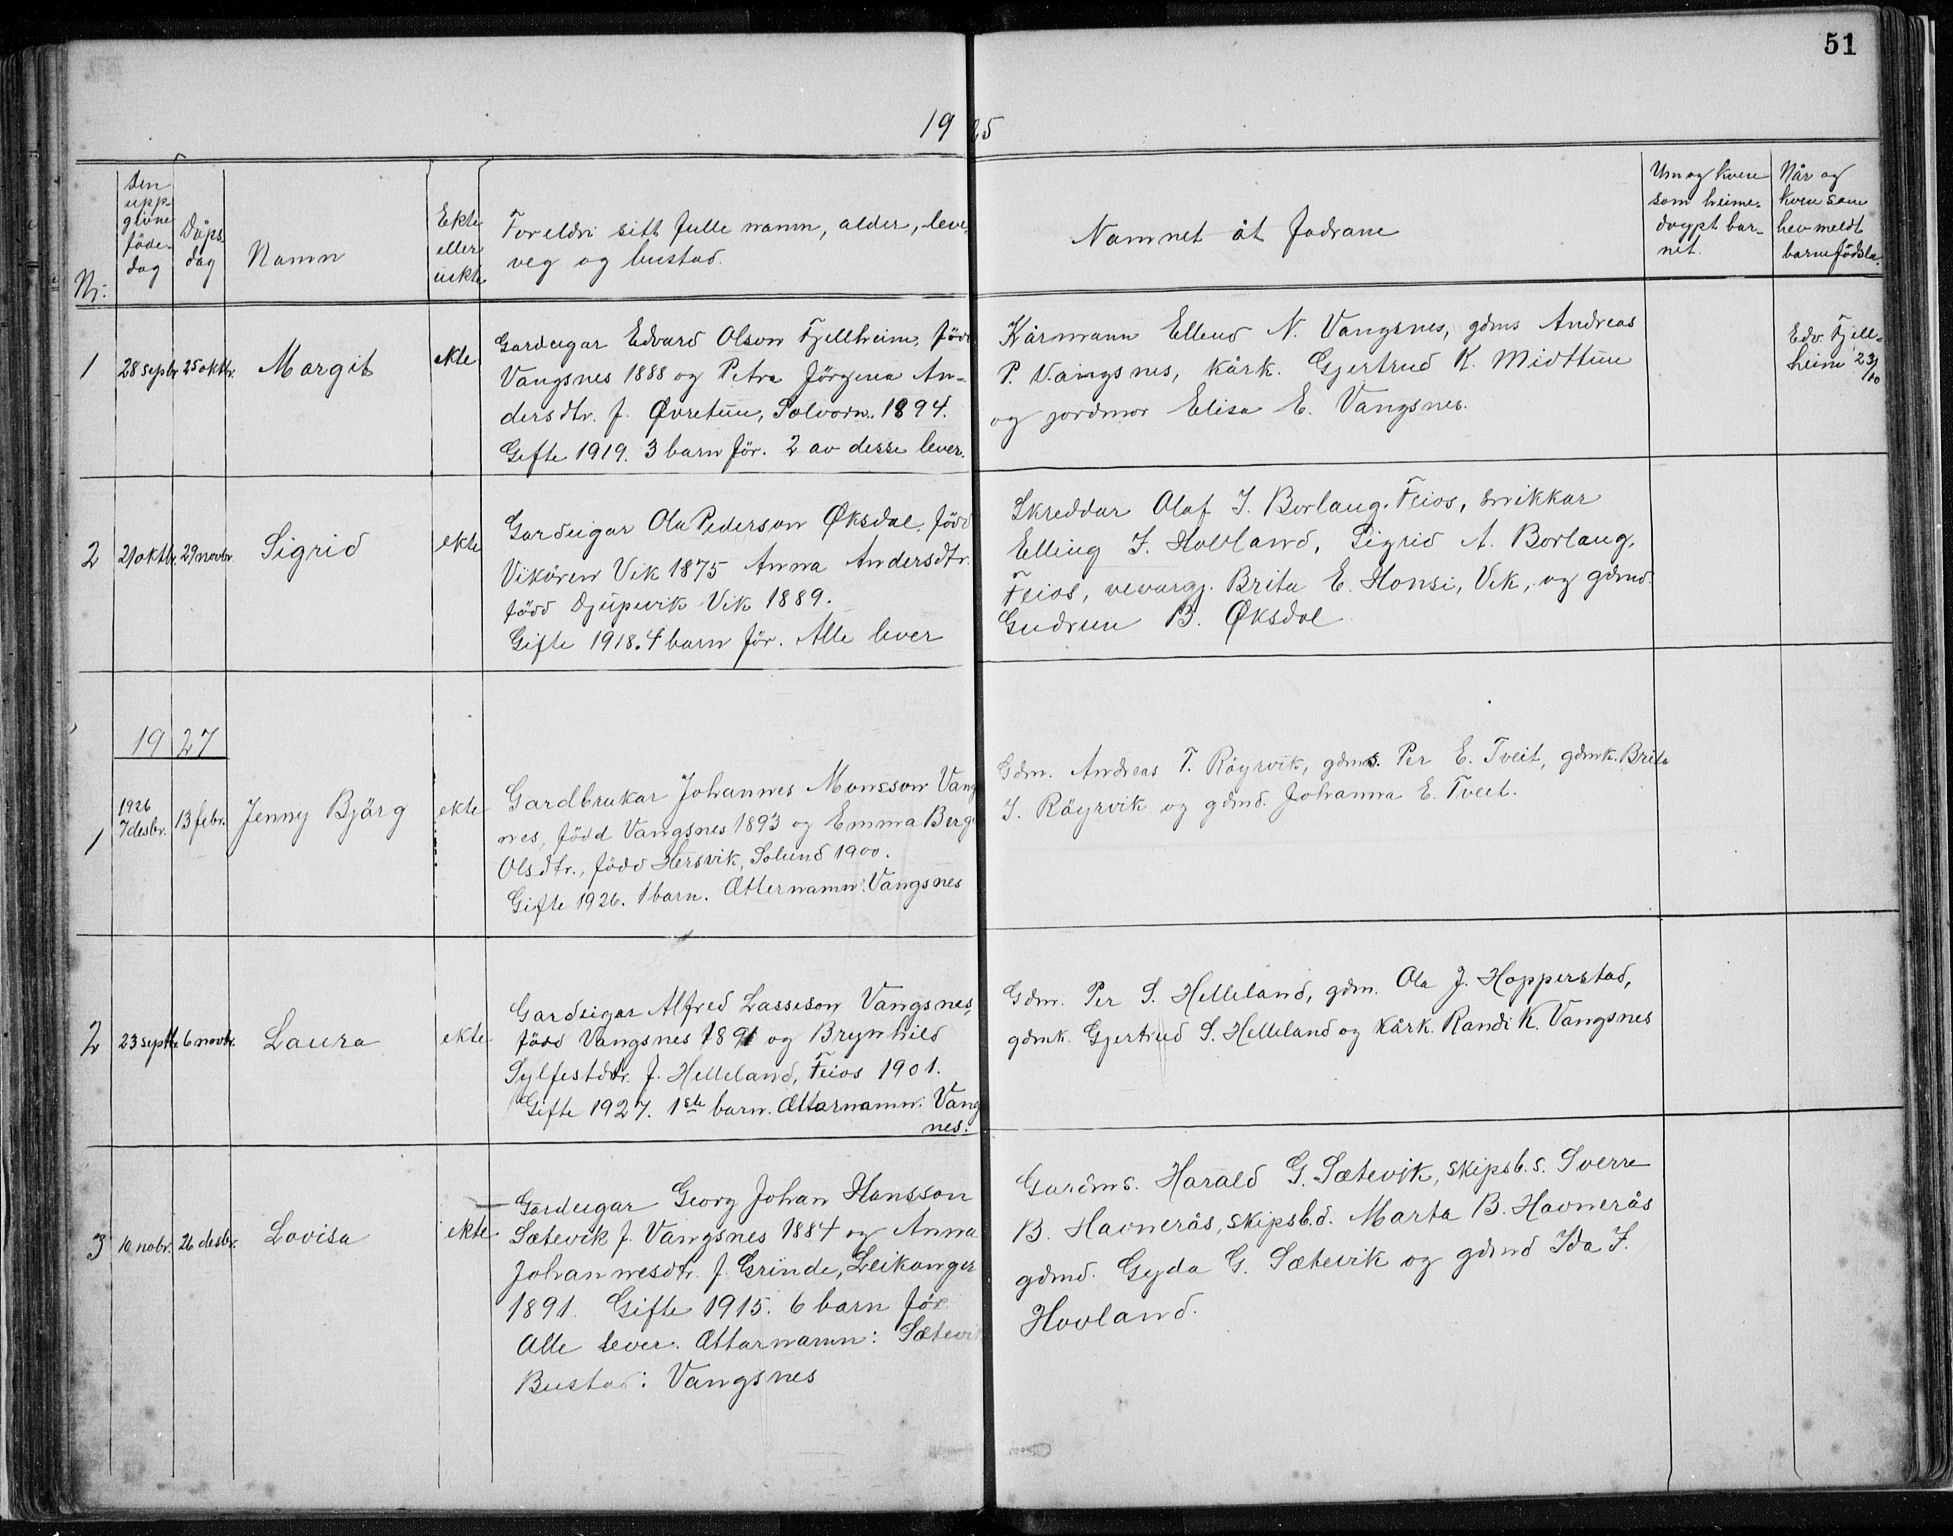 51
1925
Nr.
Den
upp-
givne
föde-
dag
Döps-
dag
Namn
Ekte
eller
uekte
Foreldri sitt fulle namn, alder, leve-
veg og bustad.
Namnet åt fadrane
Um og kven
som heime-
døypt bar-
net.
Når og
kven som
hev meldt
barnefödsla.
1
28 septr.
25 oktbr.
Margit
ekte
Gardeigar Edvard Olson Fjellheim, född
Vangsnes 1888 og Petra Jörgina An-
dersdtr. f. Øvretun, Solvorn. 1894.
Gifte 1919. 3 barn för. 2 av desse lever.
Kårmann Ellend N. Vangsnes, gdms Andreas
P. Vangsnes, kårk. Gjertrud K. Midttun
og jordmor Elisa E. Vangsnes.
Edv. Fjell-
heim 23/10
2
21 oktbr.
29 novbr.
Sigrid
ekte
Gardeigar Ola Pederson Øksdal, född
Vikören Vik 1875 Anna Andersdtr.
född Djupevik Vik 1889.
Gifte 1918. 4 barn för. Alle lever
Skreddar Olaf I. Borlaug. Feios, snikkar
Elling I. Hovland, Sigrid A. Borlaug,
Feios, vevargj. Brita E. Honsi, Vik, og gdmd.
Gudrun B. Øksdal
1927
1
1926
7 desbr.
13 febr.
Jenny Bjärg
ekte
Gardbrukar Johannes Monsson Vang
nes, född Vangsnes 1893 og Emma Berg
Olsdtr., född Hersvik, Solund 1900.
Gifte 1926. 1 barn. Ætternamn: Vangsnes
Gdm. Andreas T. Röyrvik, gdms. Per E. Tveit, gdmk. Brita
I. Röyrvik og gdmd. Johanna E. Tveit.
2
23 septbr.
6 novbr.
Laura
ekte
Gardeigar Alfred Lasseson Vangsnes,
född Vangsnes 1891 og Brynhild
Sylfestdtr. f. Helleland, Feios 1901.
Gifte 1927. 1ste barn. Ættarnamn: Vang
nes.
Gdm. Per S. Helleland, gdm. Ola J. Hopperstad,
gdmk. Gjertrud S. Helleland og kårk. Randi K. Vangsnes
3
10 nobr.
26 desbr.
Lovisa
ekte
Gardeigar Georg Johan Hansson
Sætevik f. Vangsnes 1884 og Anna
Johannesdtr. f. Grinde, Leikanger
1891. Gifte 1915. 6 barn för
Alle lever. Ættarnamn: Sætevik
Bustad: Vangsnes
Gardms. Harald G. Sætevik, skipsb.s. Sverre
B. Havnerås, skipsb.d. Marta B. Havnerås
gdmd. Gyda G. Sætevik og gdmd Ida I.
Hovland.